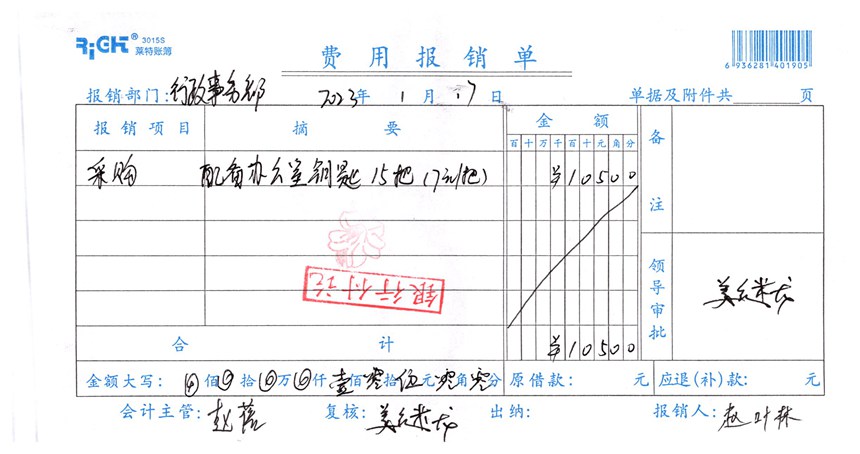 RiGHT® 3015S
莱特账簿
费用报销单
6 936281 401905
报销部门:行政事务部 2023年 1 月 17 日 单据及附件共 页
报销项目 摘要 金额 备注
百十万千百十元角分
采购 配备办公室钥匙 15把 (7元/把) ¥10500
银行付讫
领导审批
合计 ¥10500
金额大写: 佰 拾 万 仟 壹佰零拾伍元零角零分 原借款: 元 应退(补)款: 元
会计主管: 赵蓓 复核: 出纳: 报销人: 赵叶林